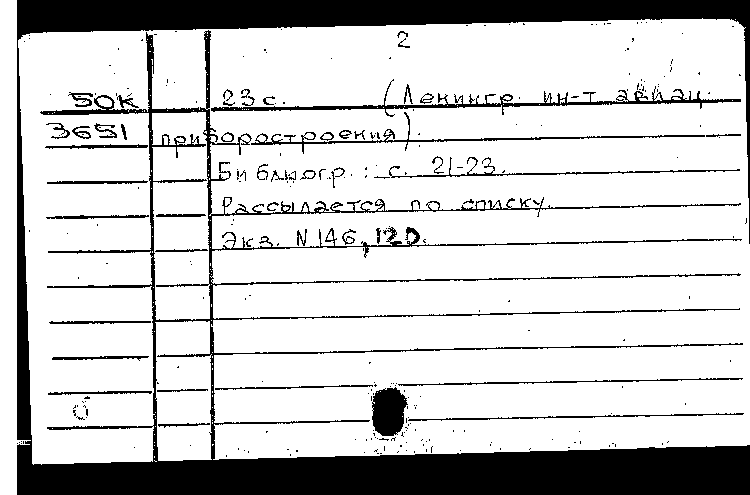 2
50К 23 с. (Ленингр. ин-т авиац.
3651 приборостроения).
Библиогр.: с. 21-23.
Рассылается по списку.
Экз. N 146, 120.
б